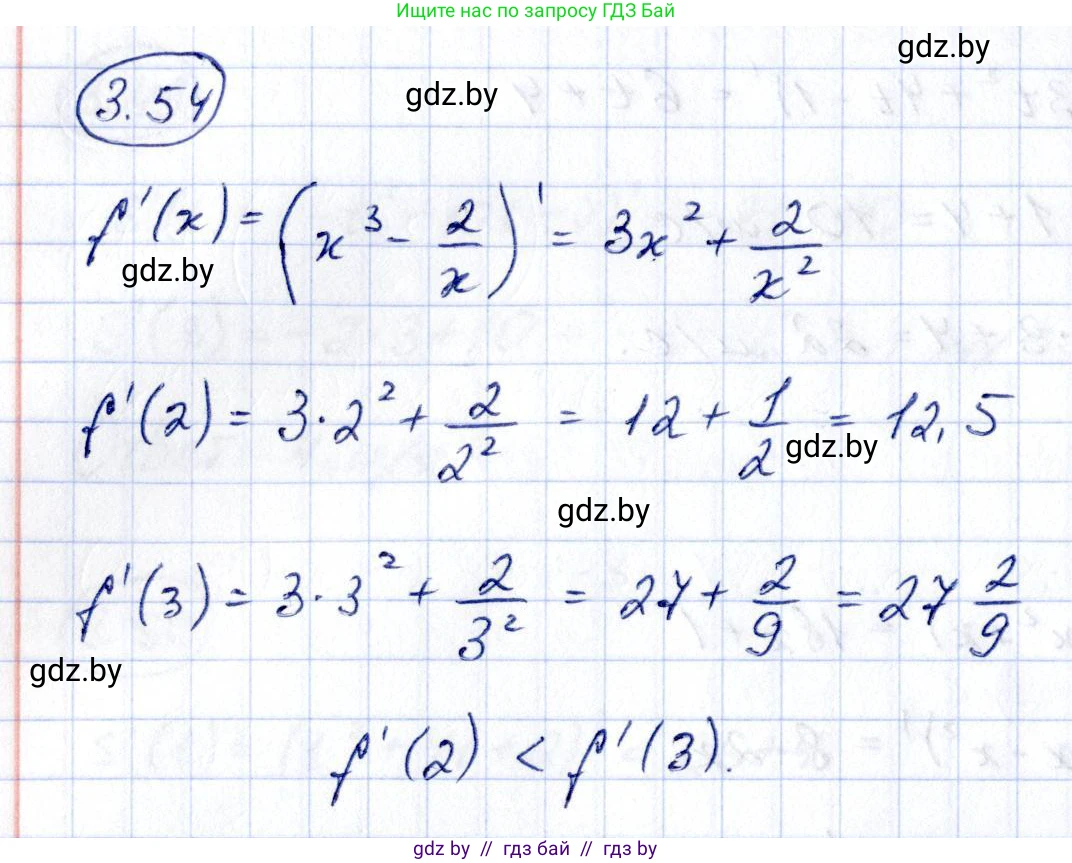 Ищите нас по запросу ГДЗ Бай
gdz.by
3.54
gdz.by
f'(x) = (x³ - 2/x)' = 3x² + 2/x²
gdz.by
f'(2) = 3·2² + 2/2² = 12 + 1/2 = 12,5
gdz.by
gdz.by
f'(3) = 3·3² + 2/3² = 27 + 2/9 = 27 2/9
gdz.by
f'(2) < f'(3).
gdz.by // гдз бай // гдз by